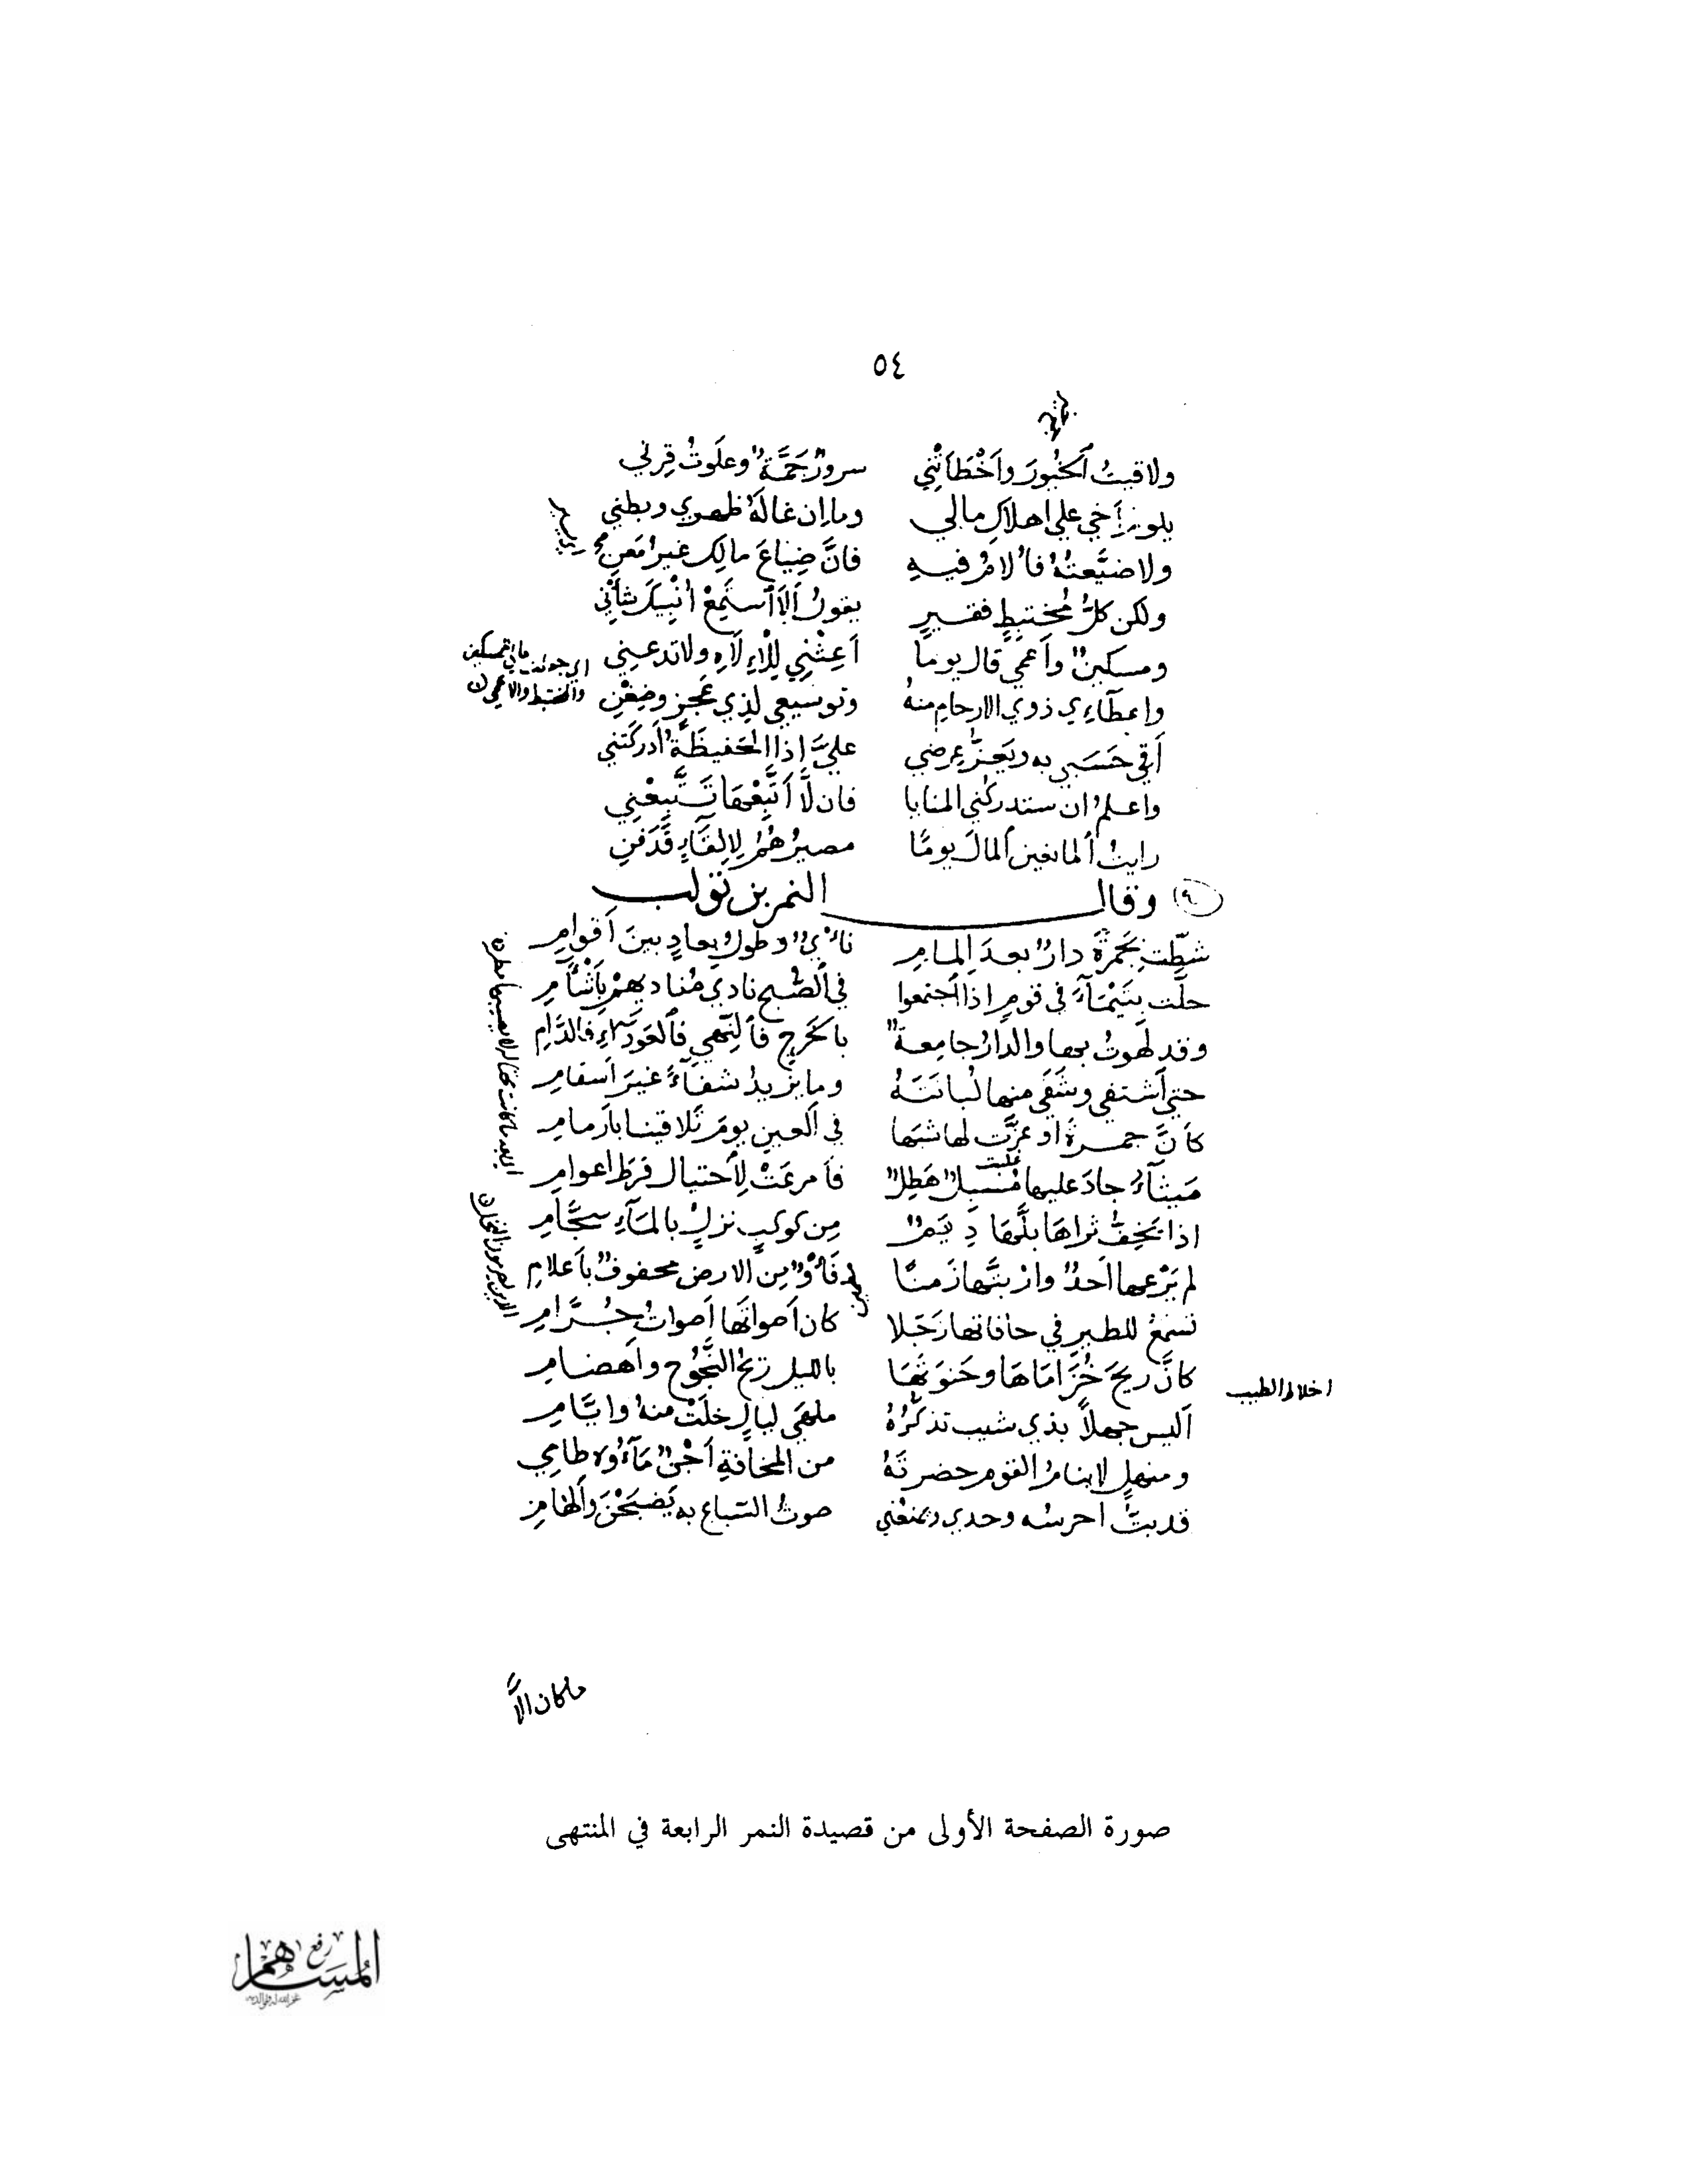 ٥٤
ولاقيتُ ٱلخُبُورَ وأَخْطَأَتْنِي سرورٌ جَمَّةٌ وعلَوتُ قِرني
يلومُ أَخي علي اهلاكِ مالي وما إن غالَهُ ظهري وبطني
ولا ضيَّعتُهُ فأُلامُ فيهِ فانَّ ضِيَاعَ مالِك غيرُ مَعنِ
ولكن كلُّ مُختبِطٍ فقيرٍ يقولُ أَلَا ٱستَمِعْ أُنْبِيكَ شأني
ومسكينٌ وأعمي قال يوما أَعِثْنِي لِلْإِلَاهِ ولا تدعيني
واعطآءِي ذوي الارحامِ منهُ وتوسيعي لذي عَجزٍ وضِغْنِ
أَقي حَسَبي به ويَعِزُّ عِرضي عليَّ اذا الحَفيظَةُ أَدركَتني
واعلمُ ان ستدركُني المنايا فان لَّا أَتَّبِعْهَا تَتَّبِعْنِي
رايتُ ٱلمانعين ٱلمالَ يومًا مصيرُهُمُ لإلقآءٍ فدَفنِ
وقال النمر بن تولب
شطَّت بجَمرَةَ دارٌ بعدَ إلمامِ نأيٌ وطولُ بِعادٍ بينَ أَقوامِ
حلَّت بتَيْمَآءَ في قومٍ اذا ٱجتمعوا في ٱلصُّبحِ نادي مُناديهِمْ بأَشْآمِ
وقد لَهوتُ بها والدارُ جامعةٌ بالخَرجِ فٱلنِّهيِ فٱلعَورَآءِ فالدَّامِ
حتي ٱشتفي وشَفَي منها لُبانَتَهُ وما يزيدُ شفآءً غيرَ أَسقامِ
كأنَّ جمرةَ او عزَّت لها شبها في ٱلعينِ يومَ تَلاقينا بأَرمامِ
مَيثآءُ جادَ عليها مُسبِلٌ هَطِلٌ فأَمرعَتْ لِٱحتيالٍ فَرطَ اعوامِ
اذا يَجِفُّ ثراها بلَّها دِيَمٌ مِن كوكبٍ نزلٍ بالمآءِ سجَّامِ
لم يَرْعها احدٌ وارْبتَّها زَمنًا فأوٌ مِن الارض محفوفٌ بأعلامِ
تسمعُ للطيرِ في حافاتها زَجَلا كان أَصواتَها أَصواتُ جُرَّامِ
كانَّ ريحَ خُزَامَاهَا وحَنوَتِهَا بالليلِ ريحُ النَّجُوجٍ وأَهضامِ
اخلاط الطيب
أَليس جهلاً بذي شيب تذكُّرُهُ ملهَي ليالٍ خلَتْ منهُ وايَّامِ
ومنهلٍ لا ينامُ القوم حضرتَهُ من المخافةِ أَجْنٍ مَآءُهُ طامي
قد بتُّ احرسُه وحدي ويمنعُني صوتُ السباع به يَضبَحْنَ وٱلهَامِ
ما كان الَّا
صورة الصفحة الأولى من قصيدة النمر الرابعة في المنتهى
رفع
المساهم
غفر الله له ولوالديه